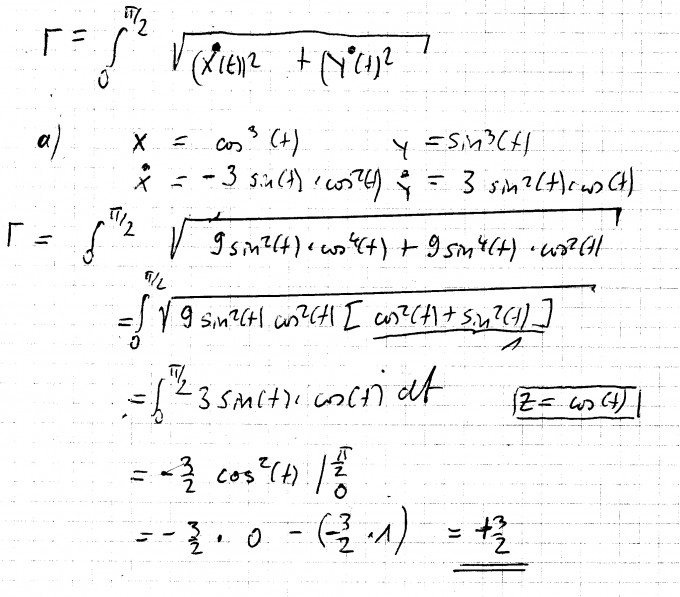 Γ = ∫₀^{π/2} √((ẋ(t))² + (ẏ(t)²
a) x = cos³(t) y = sin³(t)
ẋ = -3 sin(t) · cos²(t) ẏ = 3 sin²(t) · cos(t)
Γ = ∫₀^{π/2} √(9 sin²(t) · cos⁴(t) + 9 sin⁴(t) · cos²(t)
= ∫₀^{π/2} √(9 sin²(t) cos²(t) [cos²(t) + sin²(t)]
1
= ∫₀^{π/2} 3 sin(t) · cos(t) dt |z = cos(t)|
= -3/2 cos²(t) |₀^{π/2}
= -3/2 · 0 - (-3/2 · 1) = +3/2